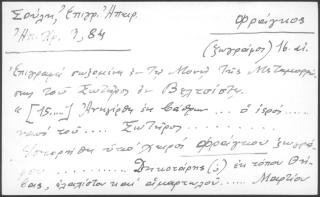 Σούλη, Ἐπιγρ. Ἠπειρ. Φράγκος
Ἠπ. Χρ. 9, 84
(ζωγράφος) 16. αἰ.
Ἐπιγραφὴ σωζομένη ἐν τῇ Μονῇ τῆς Μεταμορφώ
σεως τοῦ Σωτῆρος ἐν Βελτσίστῃ.
"[15....] Ἀνηγέρθη ἐκ βάθρων ... ὁ ἱερός.....
ναὸς τοῦ ..... Σωτῆρος
Ἱστορήθη ὑπὸ χειρὸς Φράγκου ζωγρά
φου ........ ἐκ τόπου Θη
βας, ἐλαχίστου καὶ ἁμαρτωλοῦ..... Μαρτίου